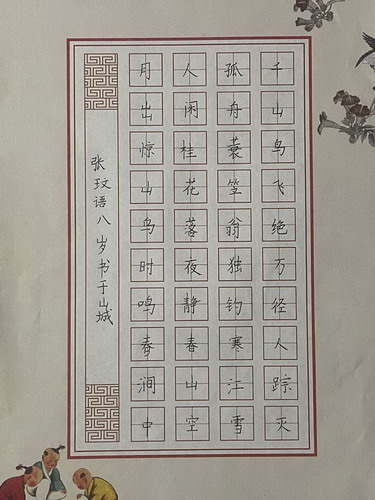 千山鸟飞绝万径人踪灭
孤舟蓑笠翁独钓寒江雪
人闲桂花落夜静春山空
月出惊山鸟时鸣春涧中
张玟语八岁书于山城